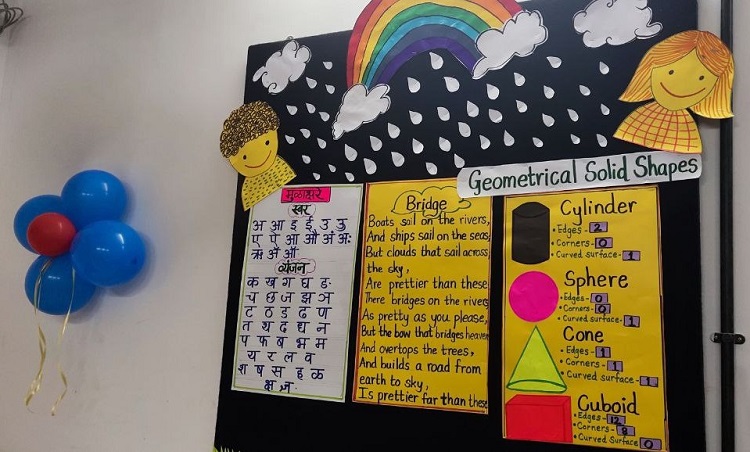 Geometrical Solid Shapes
मुळाक्षरे
स्वर
अ आ इ ई उ ऊ
ए ऐ ओ औ अं अः
ऋ ॲ ऑ
व्यंजन
क ख ग घ ङ
च छ ज झ ञ
ट ठ ड ढ ण
त थ द ध न
प फ ब भ म
य र ल व
श ष स ह ळ
क्ष ज्ञ
Bridge
Boats sail on the rivers,
And ships sail on the seas
But clouds that sail across
the sky,
Are prettier than these
There bridges on the rivers
As pretty as you please,
But the bow that bridges heaven
And overtops the trees,
And builds a road from
earth to sky,
Is prettier far than these
Cylinder
• Edges - 2
• Corners - 0
• Curved surface - 1
Sphere
• Edges - 0
• Corners - 0
• Curved surface - 1
Cone
• Edges - 1
• Corners - 1
• Curved surface - 1
Cuboid
• Edges - 12
• Corners - 8
• Curved Surface 0